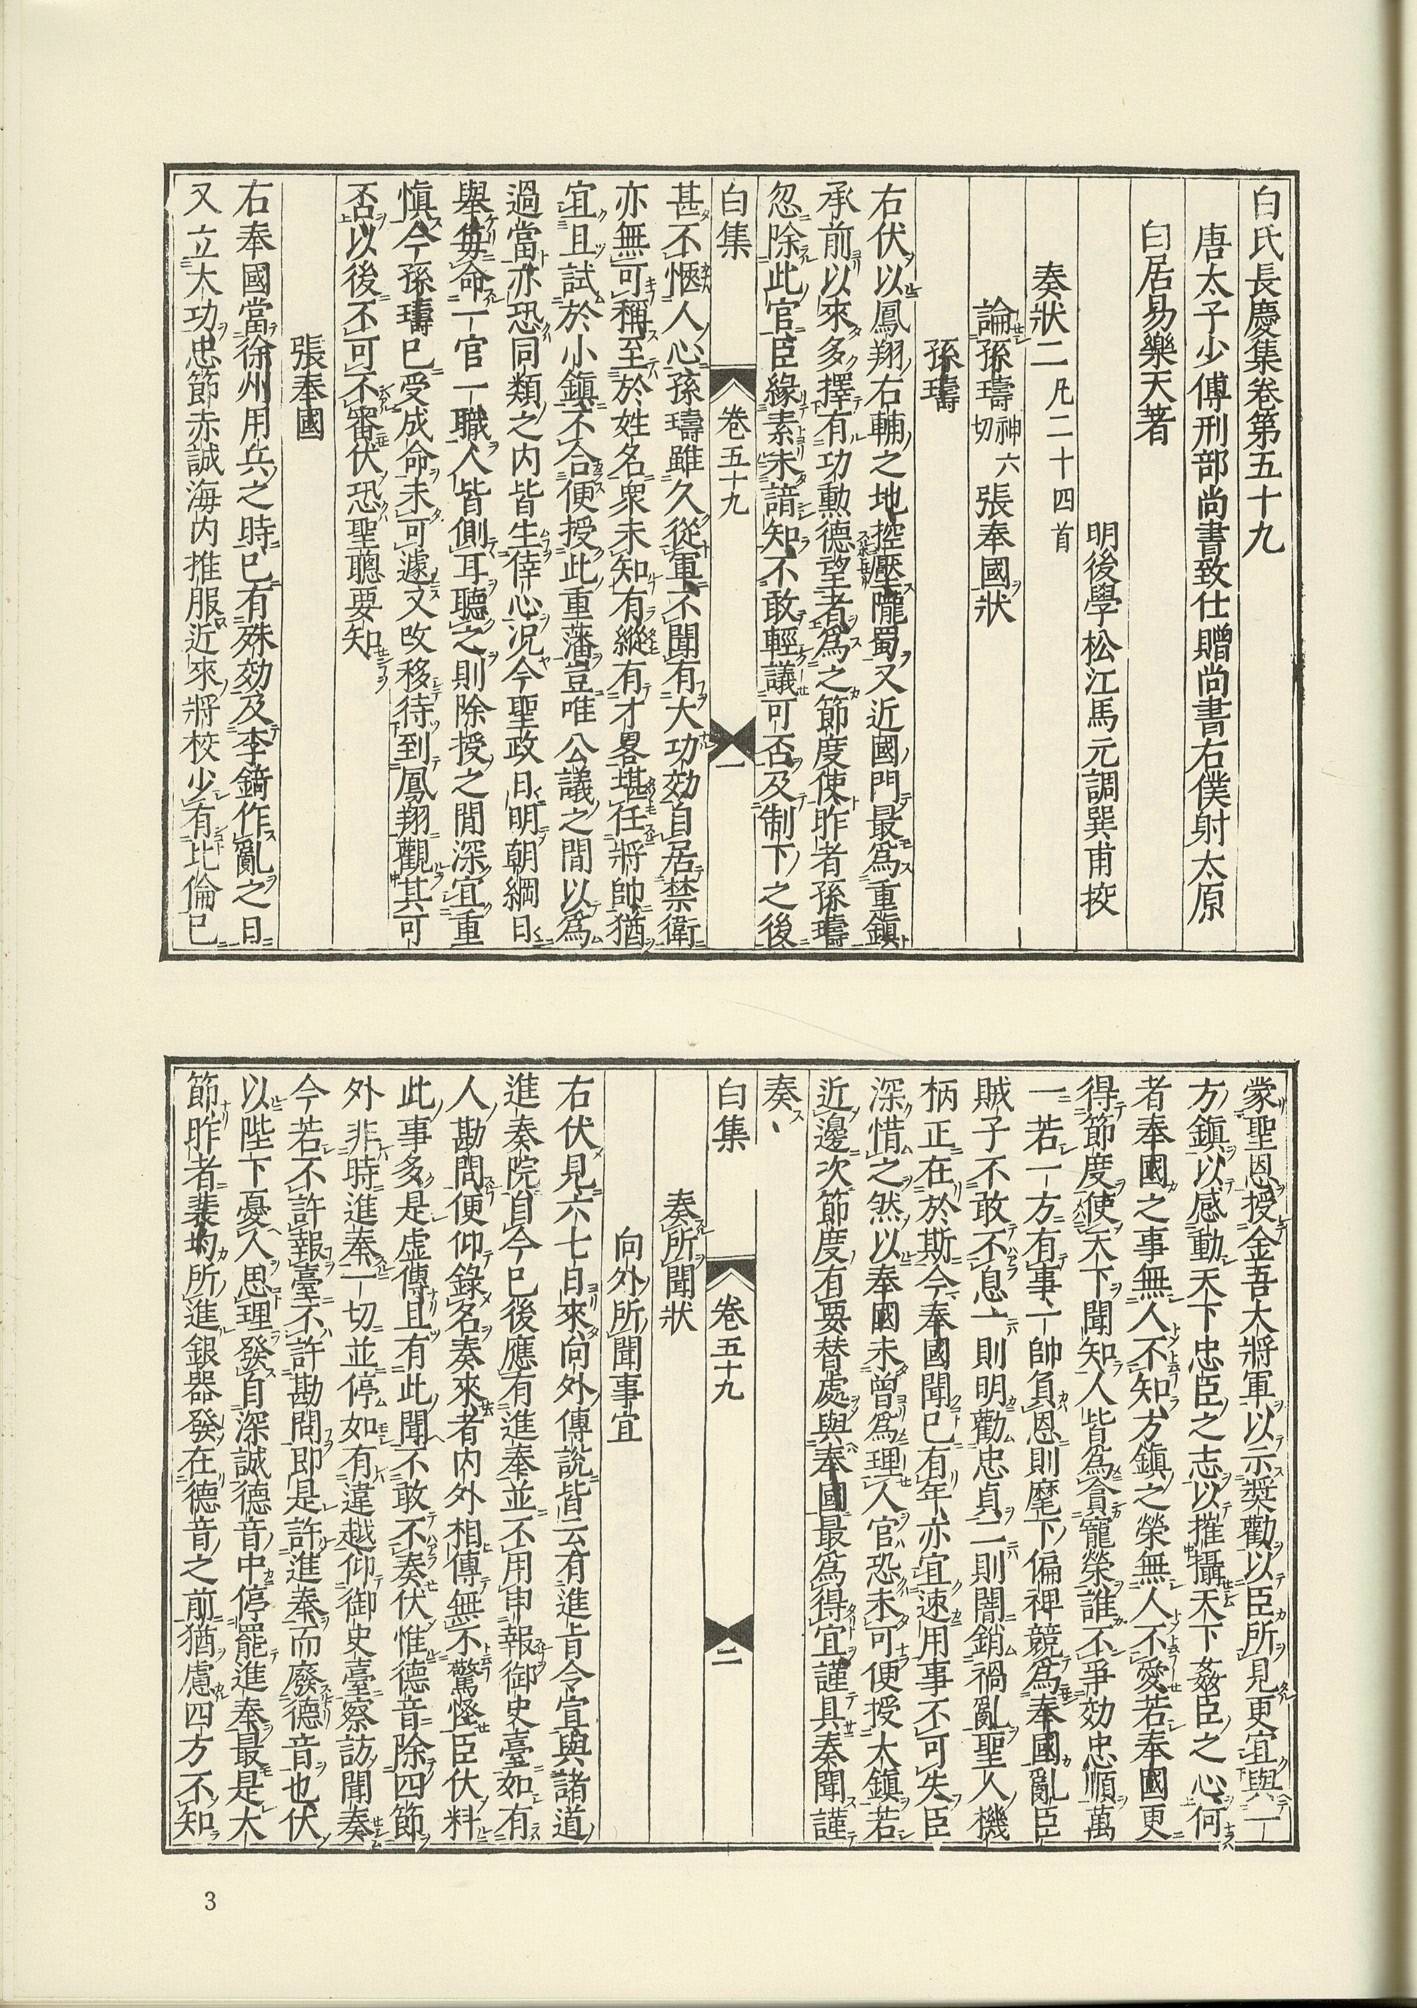 白氏長慶集卷第五十九
唐太子少傅刑部尚書致仕贈尚書右僕射太原
白居易樂天著
明後學松江馬元調巽甫挍
奏狀二 凡二十四首
論孫璹神六切張奉國狀
孫璹
右伏以鳳翔右輔之地控壓隴蜀又近國門最爲重鎮
承前以來多擇有功勲德望者爲之節度使昨者孫璹
忽除此官臣緣素未諳知不敢輕議可否及制下之後
白集 卷五十九 一
甚不愜人心孫璹雖久從軍不聞有大功効自居禁衛
亦無可稱至於姓名衆未知有縱有才畧堪任將帥猶
宜且試於小鎮不合便授此重藩豈唯公議之間以爲
過當亦恐同類之內皆生倖心况今聖政日明朝綱日
舉每命一官一職人皆側耳聽之則除授之間深宜重
慎今孫璹已受成命未可遽又改移待到鳳翔觀其可
否以後不可不審伏恐聖聰要知
張奉國
右奉國當徐州用兵之時已有殊効及李錡作亂之日
又立大功忠節赤誠海內推服近來將校少有比倫已
蒙聖恩授金吾大將軍以示奨勸以臣所見更宜與一
方鎮以感動天下忠臣之志以摧攝天下姦臣之心何
者奉國之事無人不知方鎮之榮無人不愛若奉國更
得節度使天下聞知人皆爲貪寵榮誰不爭効忠順萬
一若一方有事一帥負恩則麾下偏裨競爲奉國亂臣
賊子不敢不息一則明勸忠貞二則闇銷禍亂聖人機
柄正在於斯今奉國聞已有年亦宜速用事不可失臣
深惜之然以奉國未曾爲理人官恐未可便授大鎮若
近邊次節度有要替處與奉國最爲得宜謹具奏聞謹
奏
白集 卷五十九 二
奏所聞狀
向外所聞事宜
右伏見六七日來向外傳說皆云有進旨令宣與諸道
進奏院自今已後應有進奉並不用申報御史臺如有
人勘問便仰錄名奏來者內外相傳無不驚怪臣伏料
此事多是虛傳且有此聞不敢不奏伏惟德音除四節
外非時進奉一切並停如有違越仰御史臺察訪聞奏
今若不許報臺不許勘問即是許進奉而廢德音也伏
以陛下憂人思理發自深誠德音中停罷進奉最是大
節昨者裴均所進銀器發在德音之前猶慮四方不知
3